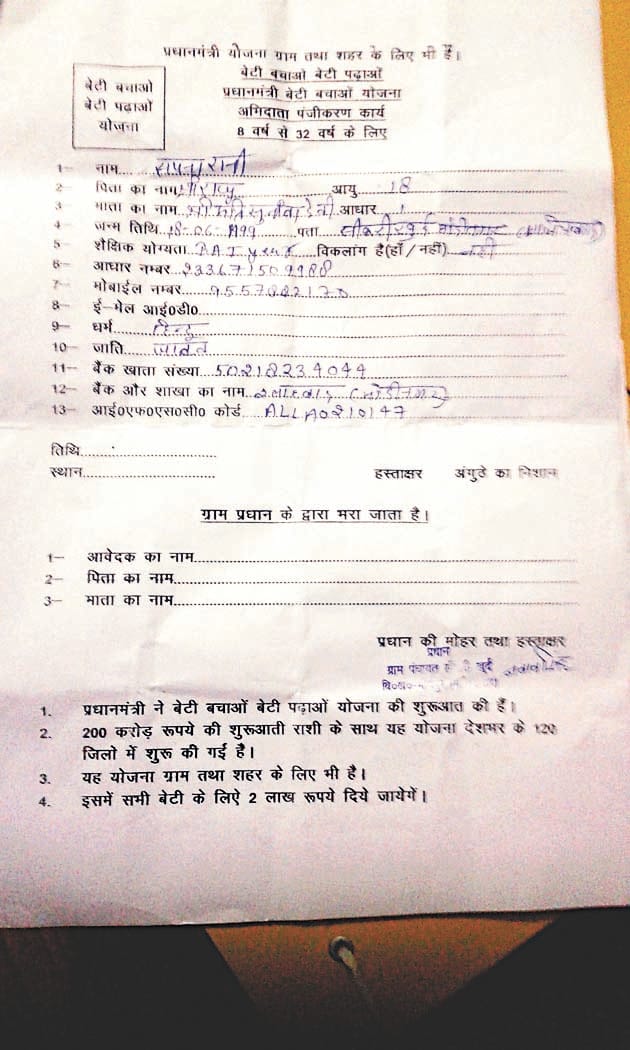 प्रधानमंत्री योजना ग्राम तथा शहर के लिए भी है।
बेटी बचाओ बेटी पढ़ाओं
प्रधानमंत्री बेटी बचाओं योजना
अगिदाता पंजीकरण कार्य
8 वर्ष से 32 वर्ष के लिए
बेटी बचाओ
बेटी पढ़ाओं
योजना
1– नाम सपना रानी
2– पिता का नाम आयु 18
3– माता का नाम आधार
4– जन्म तिथि 18.06.1999 पता
5– शैक्षिक योग्यता B.A. I year विकलांग है(हाँ / नहीं) नहीं
6– आधार नम्बर 233671509988
7– मोबाईल नम्बर
8– ई–मेल आई0डी0
9– धर्म हिन्दु
10– जाति जाटव
11– बैंक खाता संख्या 50218234044
12– बैंक और शाखा का नाम इलाहबाद (मोदीनगर)
13– आई0एफ0एस0सी0 कोर्ड ALLA0210147
तिथि
स्थान
हस्ताक्षर अंगुठे का निशान
ग्राम प्रधान के द्वारा भरा जाता है।
1– आवेदक का नाम
2– पिता का नाम
3– माता का नाम
प्रधान की मोहर तथा हस्ताक्षर
प्रधान
ग्राम पंचायत
1. प्रधानमंत्री ने बेटी बचाओं बेटी पढ़ाओं योजना की शुरूआत की हैं।
2. 200 करोड़ रूपये की शुरूआती राशी के साथ यह योजना देशभर के 120
जिलो में शुरू की गई है।
3. यह योजना ग्राम तथा शहर के लिए भी है।
4. इसमें सभी बेटी के लिऐ 2 लाख रूपये दिये जायेगें।